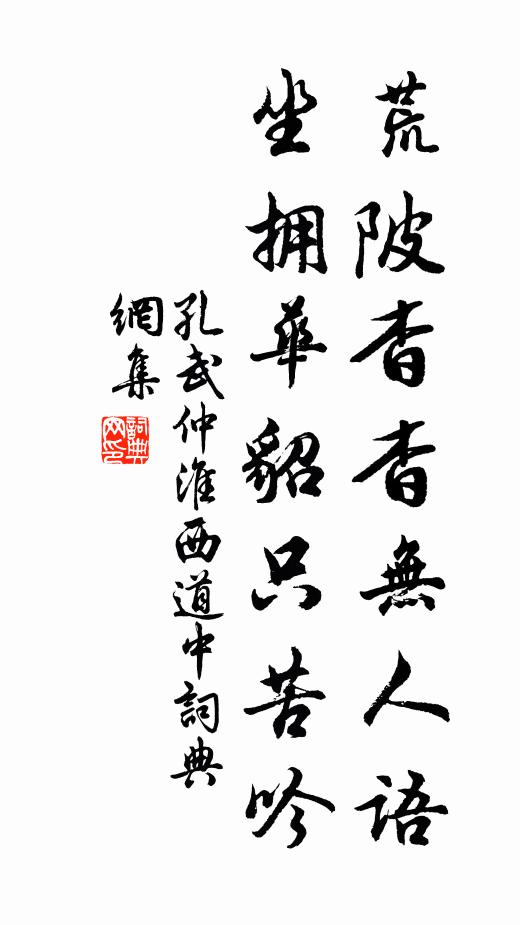 荒陂杳杳無人語
坐拥華貂只苦吟
孔武仲淮西道中詞典
網集
詞典
网印